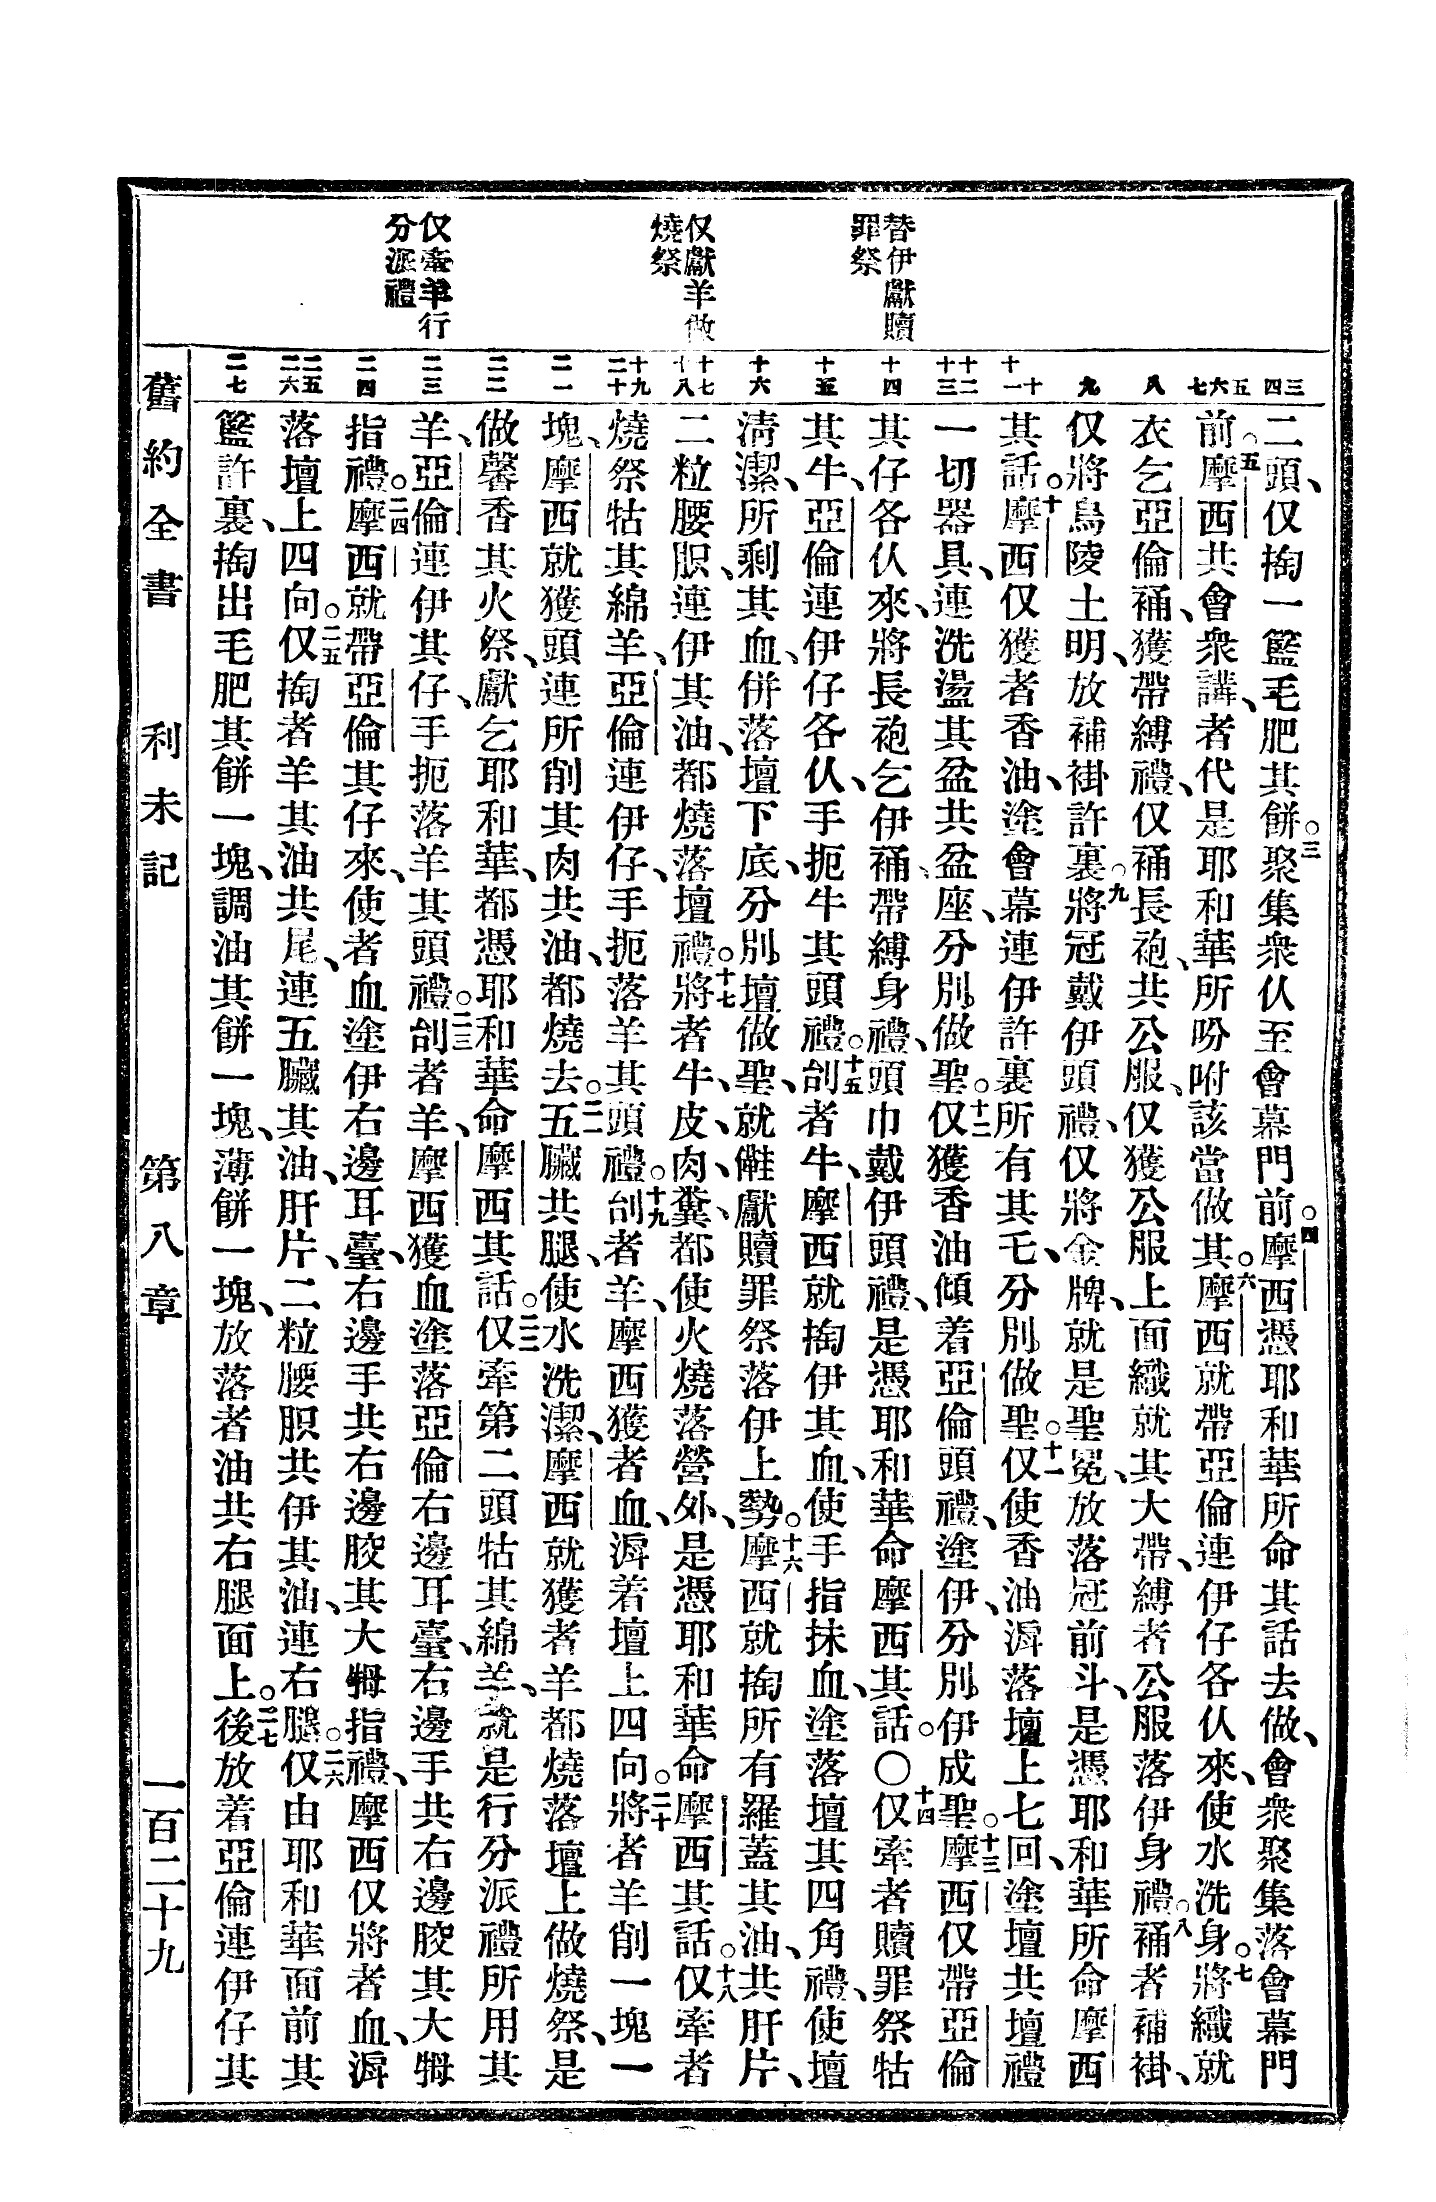 替伊獻贖
罪祭
仅獻羊做
燒祭
仅牽羊行
分派禮
三四
五六七
八
九
十十一
十二十三
十四
十五
十六
十七十八
十九二十
二一
二二
二三
二四
二五二六
二七
二頭、仅掏一籃毛肥其餅。三聚集衆仈至會幕門前。四摩西憑耶和華所命其話去做、會衆聚集落會幕門
前。五摩西共會衆講、者代是耶和華所吩咐該當做其。六摩西就帶亞倫連伊仔各仈來、使水洗身。七將織就
衣乞亞倫䘄、獲帶縛禮、仅䘄長袍、共公服、仅獲公服上面織就其大帶、縛者公服落伊身禮。八䘄者補褂、
仅將烏陵土明、放補褂許裏。九將冠戴伊頭禮、仅將金牌、就是聖冕、放落冠前斗、是憑耶和華所命摩西
其話。十摩西仅獲者香油、塗會幕連伊許裏所有其乇、分別做聖。十一仅使香油漘落壇上七回、塗壇共壇禮
一切器具、連洗盪其盆共盆座、分別做聖。十二仅獲香油傾着亞倫頭禮、塗伊、分別伊成聖。十三摩西仅帶亞倫
其仔各仈來、將長袍乞伊䘄、帶縛身禮、頭巾戴伊頭禮、是憑耶和華命摩西其話。〇十四仅牽者贖罪祭牯
其牛、亞倫連伊仔各仈、手扼牛其頭禮。十五刣者牛、摩西就掏伊其血、使手指抹血、塗落壇其四角禮、使壇
清潔、所剩其血、併落壇下底、分別壇做聖、就𠆧獻贖罪祭落伊上勢。十六摩西就掏所有羅蓋其油、共肝片、
二粒腰脤、連伊其油、都燒落壇禮。十七將者牛、皮、肉、糞、都使火燒落營外、是憑耶和華命摩西其話。十八仅牽者
燒祭牯其綿羊、亞倫連伊仔、手扼落羊其頭禮。十九刣者羊、摩西獲者血、漘着壇上四向。二十將者羊削一塊一
塊、摩西就獲頭連所削其肉共油、都燒去。二一五臟共腿、使水洗潔、摩西就獲者羊都燒落壇上做燒祭、是
做馨香其火祭、獻乞耶和華、都憑耶和華命摩西其話。二二仅牽第二頭牯其綿羊、就是行分派禮所用其
羊、亞倫連伊其仔、手扼落羊其頭禮。二三刣者羊、摩西獲血塗落亞倫右邊耳臺、右邊手共右邊骹其大𤘅
指禮。二四摩西就帶亞倫其仔來、使者血塗伊右邊耳臺、右邊手共右邊骹其大𤘅指禮、摩西仅將者血、漘
落壇上四向。二五仅掏者羊其油共尾、連五臟其油、肝片、二粒腰脤共伊其油、連右腿。二六仅由耶和華面前其
籃許裏、掏出毛肥其餅一塊、調油其餅一塊、薄餅一塊、放落者油共右腿面上。二七後放着亞倫連伊仔其
舊約全書　利未記　第八章　一百二十九